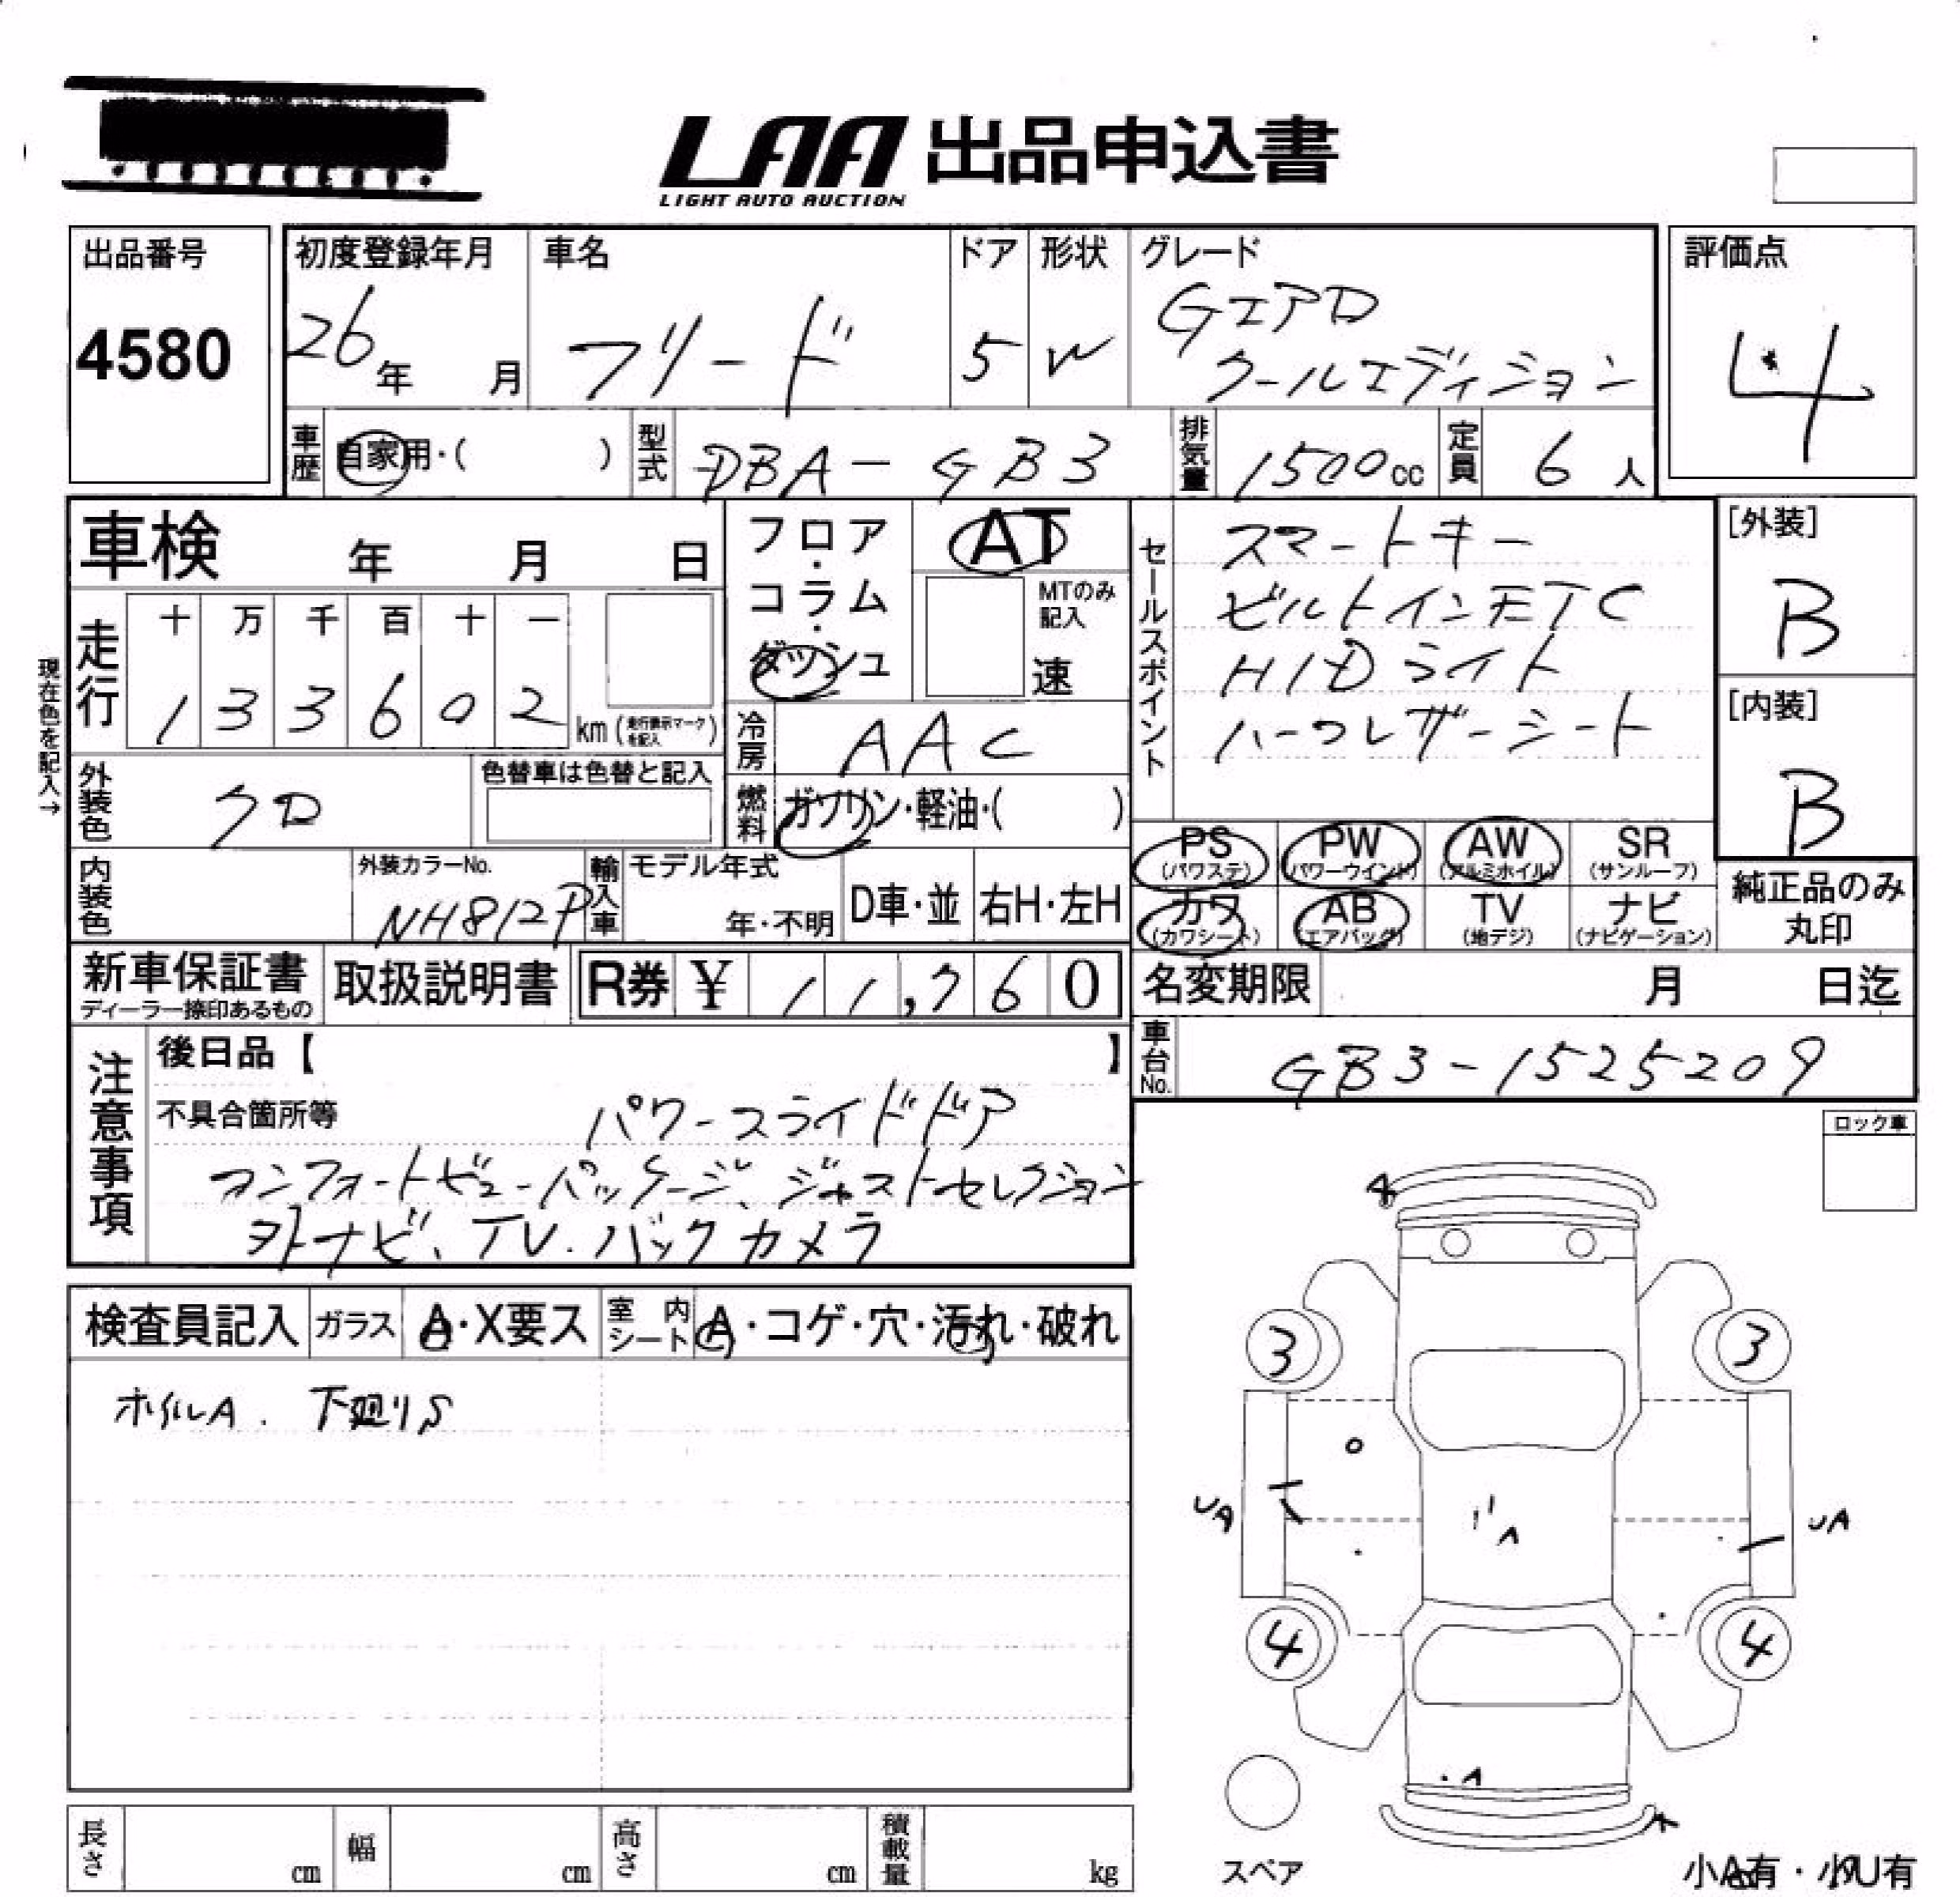 LAA 出品申込書
LIGHT AUTO AUCTION
出品番号
4580
初度登録年月
26年 月
車名
フリード
ドア
5
形状
W
グレード
Gエアロ
クールエディション
評価点
4
車歴 自家用・( )
型式 DBA-GB3
排気量 1500cc
定員 6人
車検 年 月 日
現在色を記入→
走行
十 万 千 百 十 一
1 3 3 6 0 2
km (走行表示マークを記入)
フロア・コラム・ダッシュ
AT
MTのみ記入
速
冷房 AAC
燃料 ガソリン・軽油・( )
セールスポイント
スマートキー
ビルトインETC
HIDライト
ハーフレザーシート
[外装]
B
[内装]
B
外装色 クロ
色替車は色替と記入
内装色
外装カラーNo.
NH812P
輸入車
モデル年式
年・不明
D車・並
右H・左H
PS (パワステ)
PW (パワーウインド)
AW (アルミホイル)
SR (サンルーフ)
カワ (カワシート)
AB (エアバッグ)
TV (地デジ)
ナビ (ナビゲーション)
純正品のみ
丸印
新車保証書
ディーラー捺印あるもの
取扱説明書
R券 ¥ 11,760
名変期限 月 日迄
車台No. GB3-1525209
注意事項
後日品【 】
不具合箇所等 パワースライドドア
コンフォートビューパッケージ、ジャストセレクション
外ナビ、TV.バックカメラ
ロック車
検査員記入
ガラス A・X要ス
室内シート A・コゲ・穴・汚れ・破れ
ホイルA. 下廻りS
A
3 3
UA A UA
4 4
A
A
スペア
小A有・小U有
長さ cm
幅 cm
高さ cm
積載量 kg